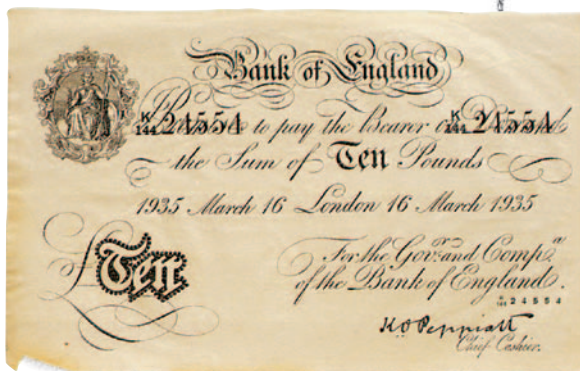 Bank of England
K/144 24554 K/144 24554
Promise to pay the Bearer on Demand
the Sum of Ten Pounds
1935 March 16 London 16 March 1935
£Ten
For the Govr. and Compa.
of the Bank of England.
K/144 24554
K O Peppiatt
Chief Cashier.